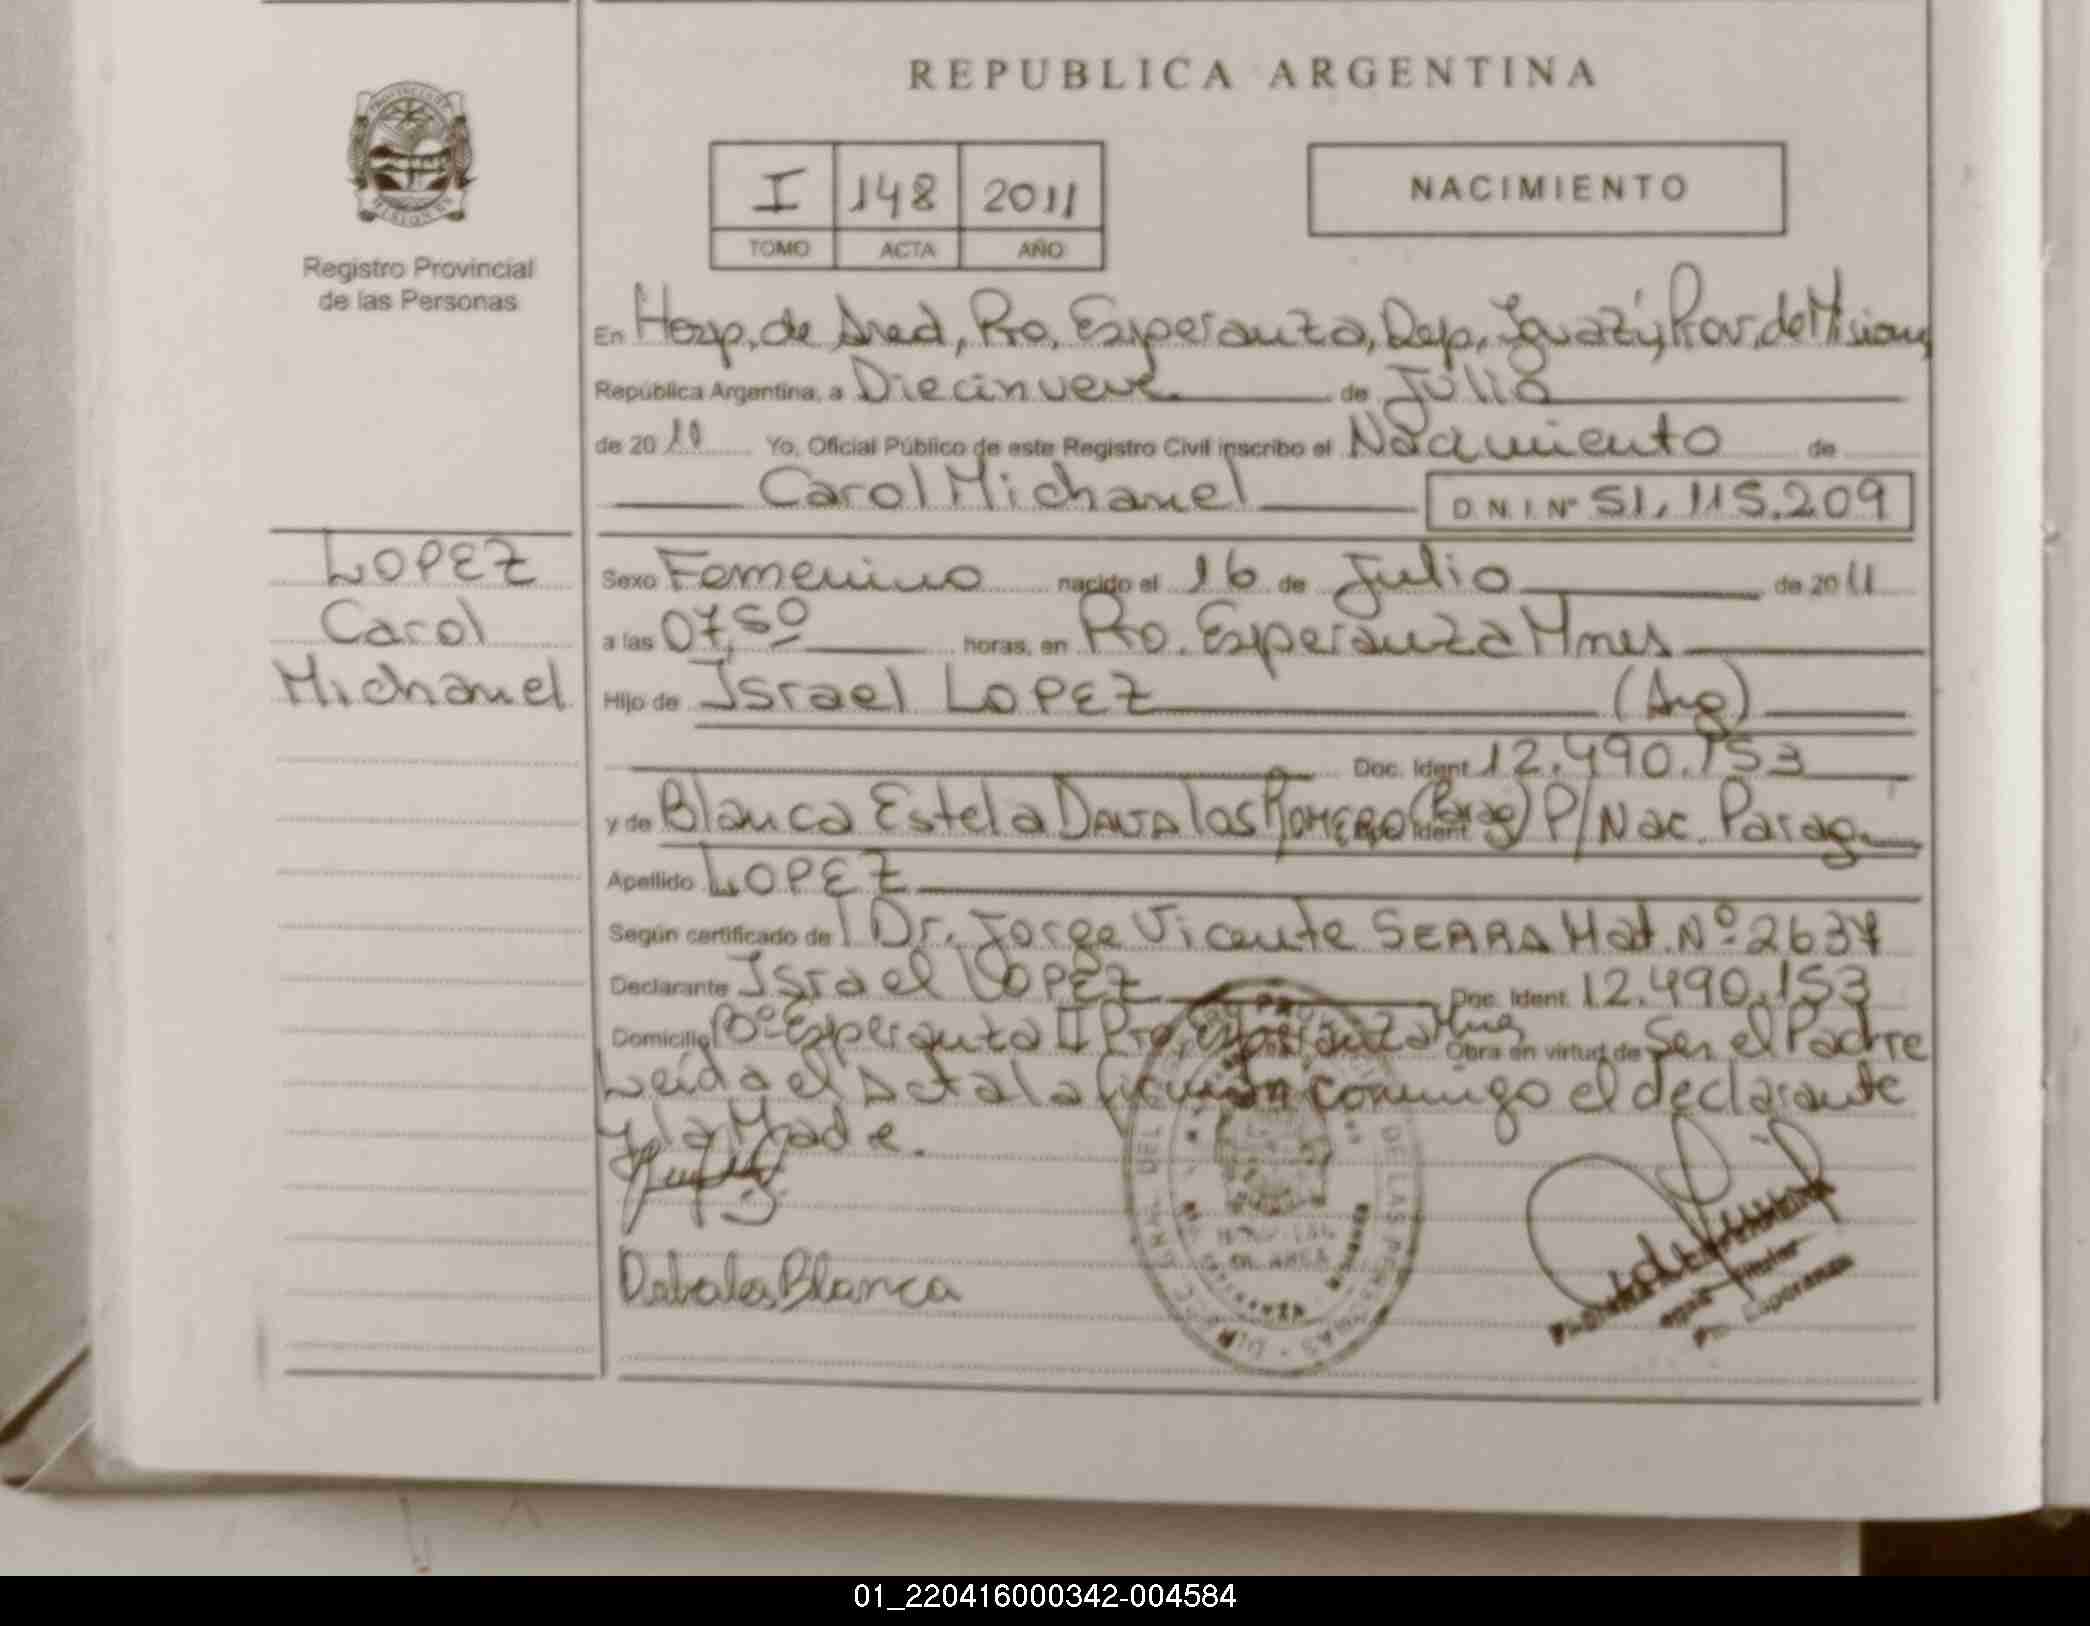 REPUBLICA ARGENTINA
I 148 2011
TOMO ACTA AÑO
NACIMIENTO
Registro Provincial
de las Personas
En Hosp. de Area, Pto. Esperanza, Dep. Iguazú, Prov. de Misiones
República Argentina, a Diecinueve de Julio
de 20 10 Yo, Oficial Público de este Registro Civil inscribo el Nacimiento de
Carol Michanel D.N.I. Nº 51.115.209
LOPEZ
Carol
Michanel
Sexo Femenino nacido el 16 de Julio de 2011
a las 07,50 horas, en Pto. Esperanza Mnes
Hijo de Israel LOPEZ (Arg)
Doc. Ident. 12.490.153
y de Blanca Estela DAVALOS ROMERO (Parag) Ident. P/Nac. Parag.
Apellido LOPEZ
Según certificado del Dr. Jorge Vicente SERRA Mat. Nº 2637
Declarante Israel LOPEZ Doc. Ident. 12.490.153
Domicilio Bº Esperanza II Pto. Esperanza Mnes Obra en virtud de Ser el Padre
Leída el Acta la firman conmigo el declarante
y la Madre.
Dabalos Blanca
DE LAS PERSONAS
Pto. Esperanza
01_220416000342-004584